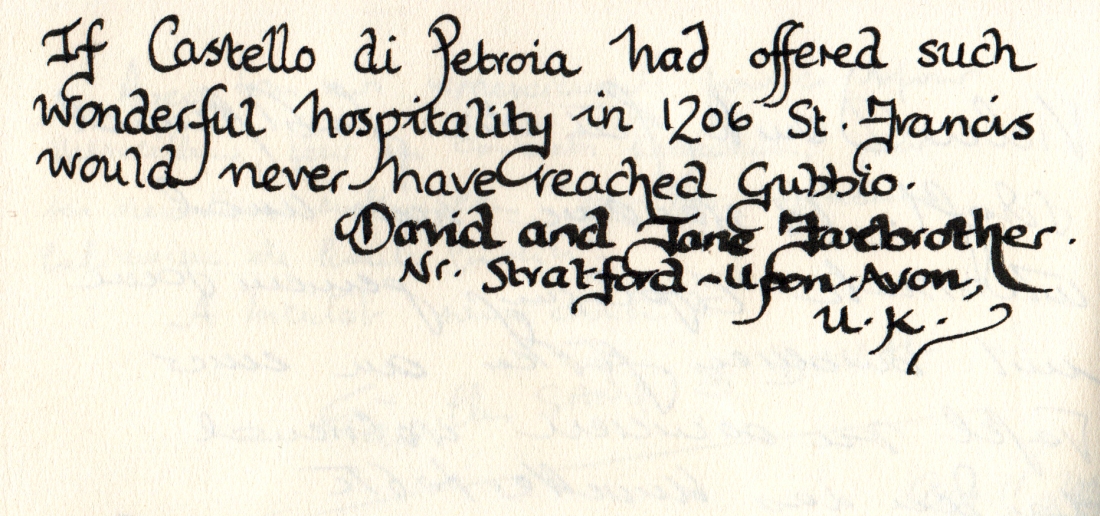 If Castello di Petroia had offered such
wonderful hospitality in 1206 St Francis
would never have reached Gubbio.
David and Jane Farebrother.
Nr. Stratford-Upon-Avon,
U.K.